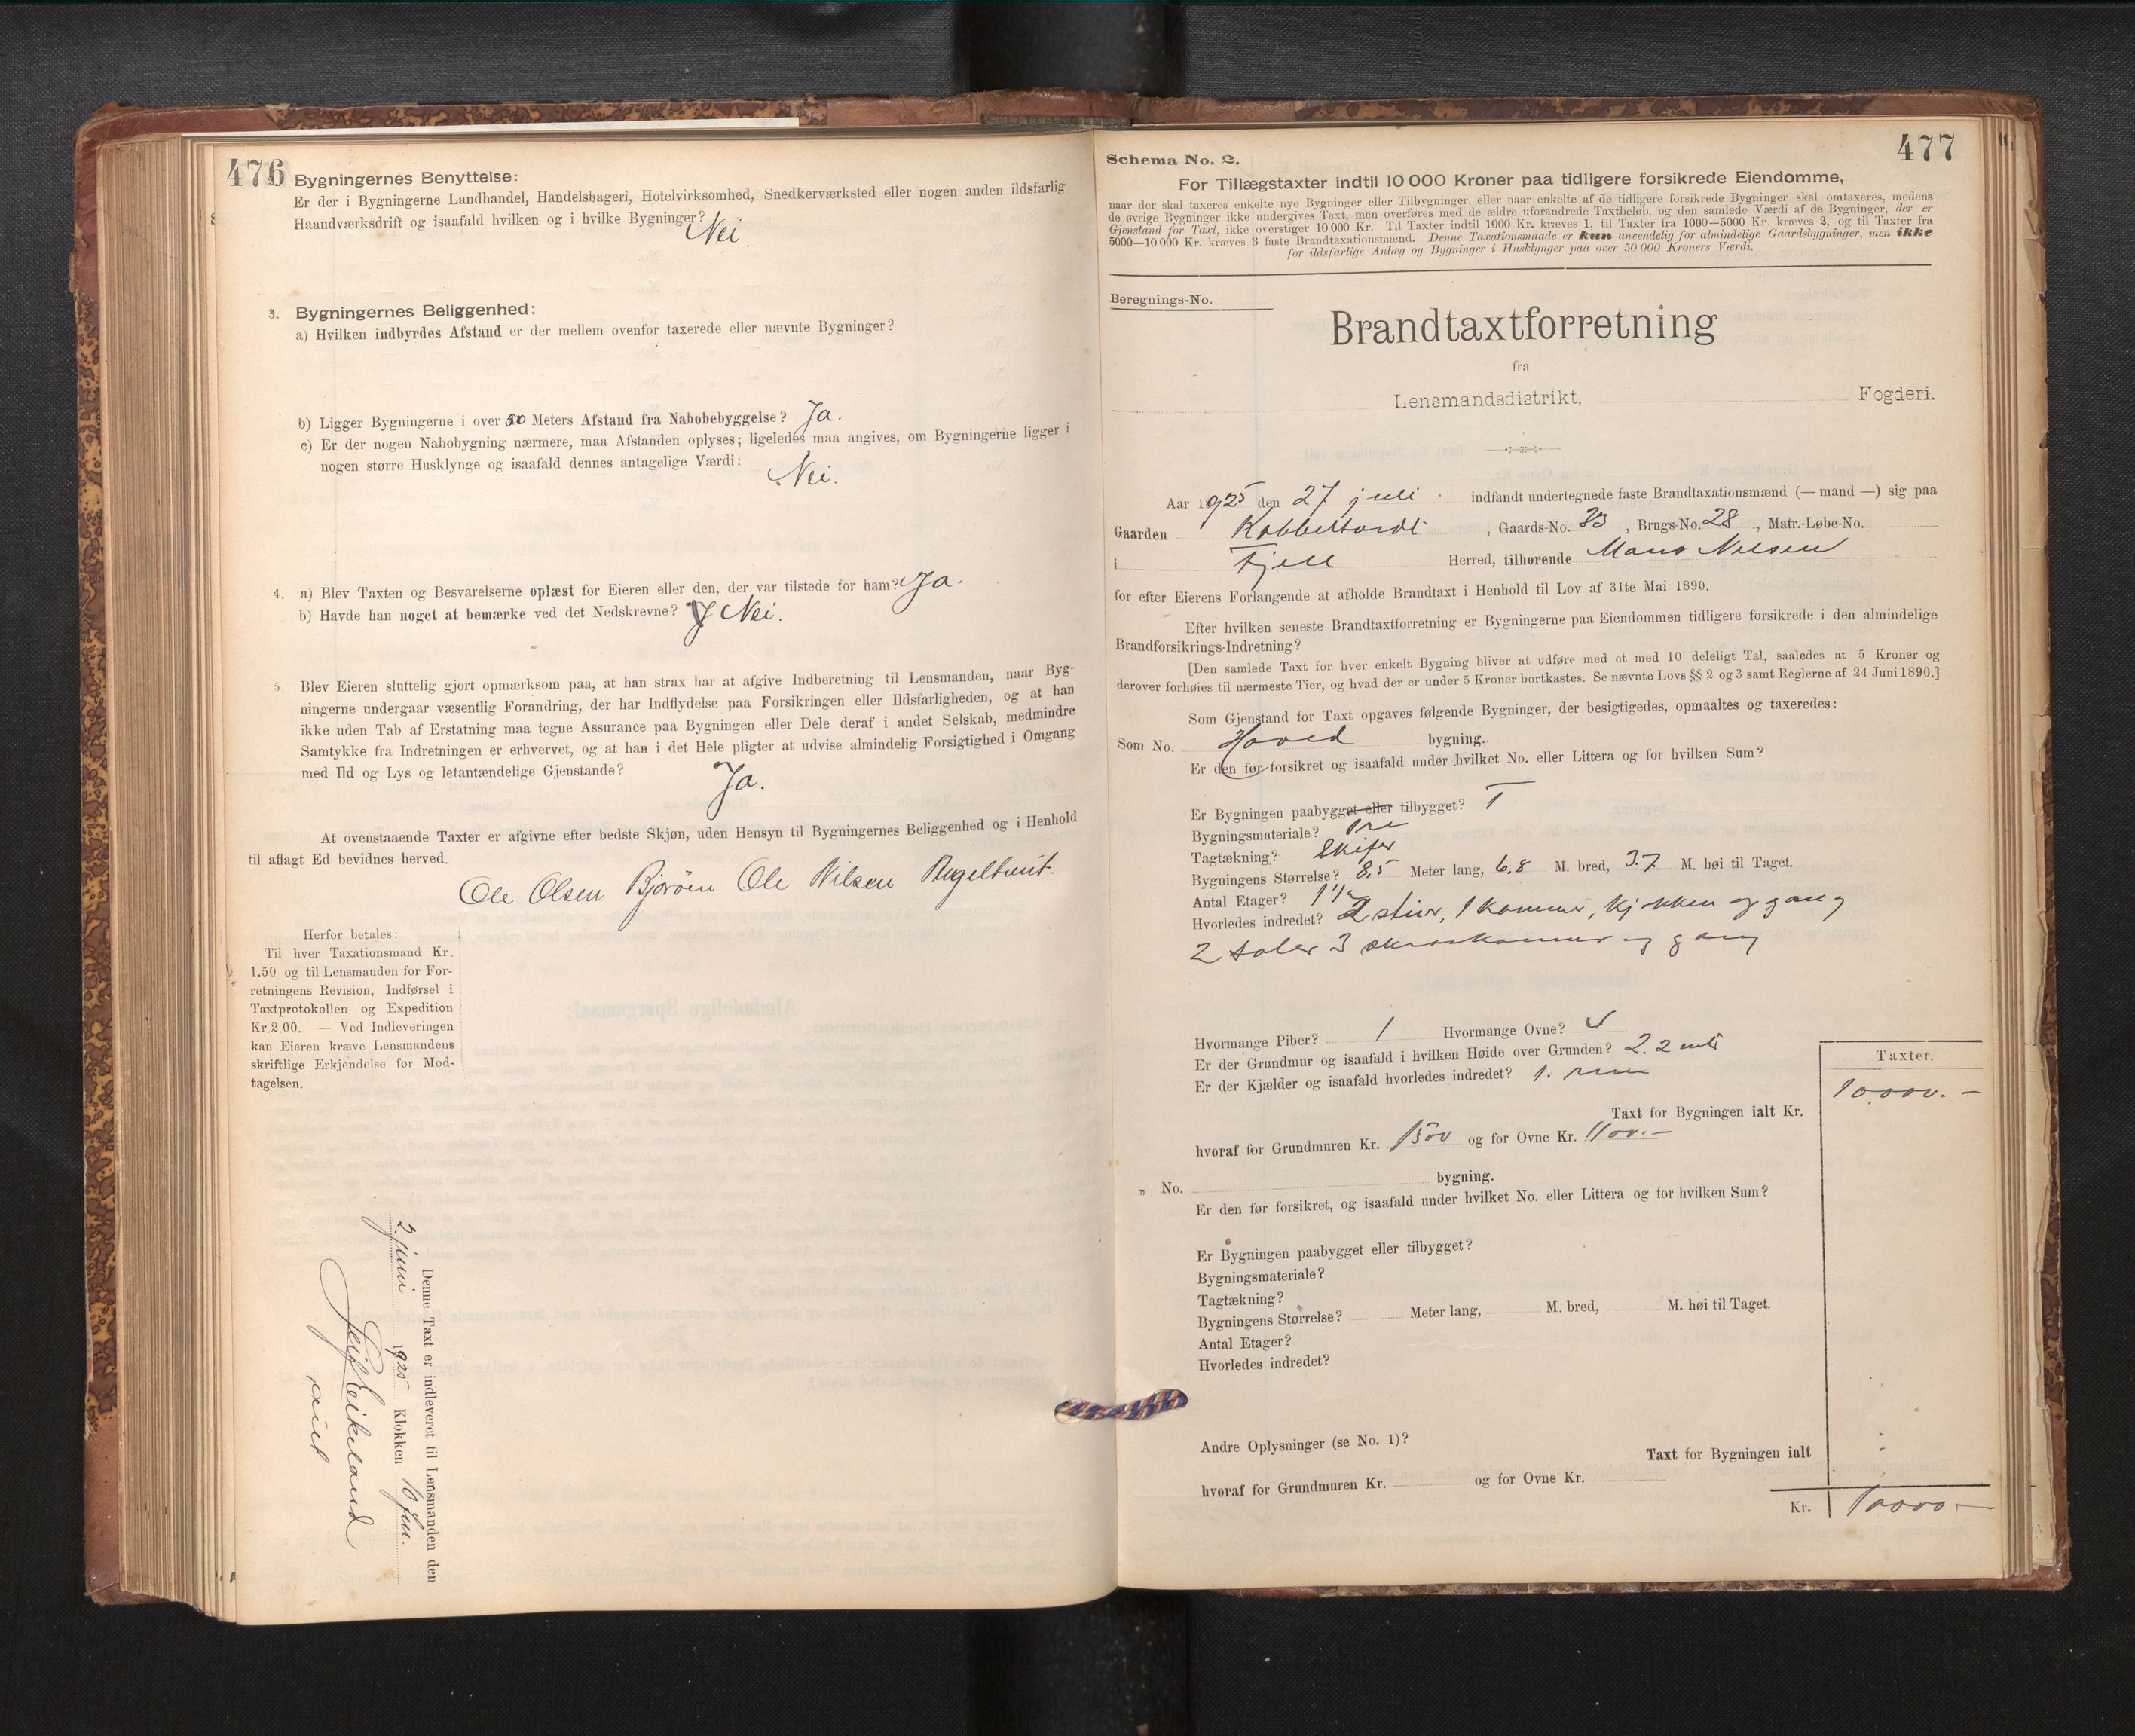 476
Bygningernes Benyttelse:
Er der i Bygningerne Landhandel, Handelsbageri, Hotelvirksomhed, Snedkerværksted eller nogen anden ildsfarlig
Haandværksdrift og isaafald hvilken og i hvilke Bygninger? Nei.
3. Bygningernes Beliggenhed:
a) Hvilken indbyrdes Afstand er der mellem ovenfor taxerede eller nævnte Bygninger?
b) Ligger Bygningerne i over 50 Meters Afstand fra Nabobebyggelse? Ja.
c) Er der nogen Nabobygning nærmere, maa Afstanden oplyses; ligeledes maa angives, om Bygningerne ligger i
nogen større Husklynge og isaafald dennes antagelige Værdi: Nei.
4. a) Blev Taxten og Besvarelserne oplæst for Eieren eller den, der var tilstede for ham? Ja.
b) Havde han noget at bemærke ved det Nedskrevne? Nei.
5. Blev Eieren sluttelig gjort opmærksom paa, at han strax har at afgive Indberetning til Lensmanden, naar Byg-
ningerne undergaar væsentlig Forandring, der har Indflydelse paa Forsikringen eller Ildsfarligheden, og at han
ikke uden Tab af Erstatning maa tegne Assurance paa Bygningen eller Dele deraf i andet Selskab, medmindre
Samtykke fra Indretningen er erhvervet, og at han i det Hele pligter at udvise almindelig Forsigtighed i Omgang
med Ild og Lys og letantændelige Gjenstande? Ja.
At ovenstaaende Taxter er afgivne efter bedste Skjøn, uden Hensyn til Bygningernes Beliggenhed og i Henhold
til aflagt Ed bevidnes herved.
Ole Olsen Bjorøen Ole Nilsen
Herfor betales:
Til hver Taxationsmand Kr.
1.50 og til Lensmanden for For-
retningens Revision, Indførsel i
Taxtprotokollen og Expedition
Kr. 2.00. — Ved Indleveringen
kan Eieren kræve Lensmandens
skriftlige Erkjendelse for Mod-
tagelsen.
Denne Taxt er indleveret til Lensmanden den
2 juni 1925 Klokken fm.
477
Schema No. 2.
For Tillægstaxter indtil 10 000 Kroner paa tidligere forsikrede Eiendomme,
naar der skal taxeres enkelte nye Bygninger eller Tilbygninger, eller naar enkelte af de tidligere forsikrede Bygninger skal omtaxeres, medens
de øvrige Bygninger ikke undergives Taxt, men overføres med de ældre uforandrede Taxtbeløb, og den samlede Værdi af de Bygninger, der er
Gjenstand for Taxt, ikke overstiger 10 000 Kr. Til Taxter indtil 1000 Kr. kræves 1, til Taxter fra 1000—5000 Kr. kræves 2, og til Taxter fra
5000—10 000 Kr. kræves 3 faste Brandtaxationsmænd. Denne Taxationsmaade er kun anvendelig for almindelige Gaardsbygninger, men ikke
for ildsfarlige Anlæg og Bygninger i Husklynger paa over 50 000 Kroners Værdi.
Beregnings-No.
Brandtaxtforretning
fra
Lensmandsdistrikt, Fogderi.
Aar 1925 den 27 juli indfandt undertegnede faste Brandtaxationsmænd (— mand —) sig paa
Gaarden Kobbeltvedt, Gaards-No. 33, Brugs-No. 28, Matr.-Løbe-No.
i Fjell Herred, tilhørende Mons Nilsen
for efter Eierens Forlangende at afholde Brandtaxt i Henhold til Lov af 31te Mai 1890.
Efter hvilken seneste Brandtaxtforretning er Bygningerne paa Eiendommen tidligere forsikrede i den almindelige
Brandforsikrings-Indretning?
[Den samlede Taxt for hver enkelt Bygning bliver at udføre med et med 10 deleligt Tal, saaledes at 5 Kroner og
derover forhøies til nærmeste Tier, og hvad der er under 5 Kroner bortkastes. Se nævnte Lovs §§ 2 og 3 samt Reglerne af 24 Juni 1890.]
Som Gjenstand for Taxt opgaves følgende Bygninger, der besigtigedes, opmaaltes og taxeredes:
Som No. Hoved bygning.
Er den før forsikret og isaafald under hvilket No. eller Littera og for hvilken Sum?
Er Bygningen paabygget eller tilbygget? T
Bygningsmateriale? Træ
Tagtækning? Skifer
Bygningens Størrelse? 8,5 Meter lang, 6,8 M. bred, 3.7 M. høi til Taget.
Antal Etager? 1 1/2
Hvorledes indredet? 2 stuer, 1 kammer, kjøkken og gang
2 saler 3 skraakammer og gang
Hvormange Piber? 1 Hvormange Ovne?
Er der Grundmur og isaafald i hvilken Høide over Grunden? 2.2 mtr
Er der Kjælder og isaafald hvorledes indredet? 1. rum
Taxter.
Taxt for Bygningen ialt Kr. 10.000.—
hvoraf for Grundmuren Kr. 1500 og for Ovne Kr. 1100.—
„ No. bygning.
Er den før forsikret, og isaafald under hvilket No. eller Littera og for hvilken Sum?
Er Bygningen paabygget eller tilbygget?
Bygningsmateriale?
Tagtækning?
Bygningens Størrelse? Meter lang, M. bred, M. høi til Taget.
Antal Etager?
Hvorledes indredet?
Andre Oplysninger (se No. 1)?
Taxt for Bygningen ialt
hvoraf for Grundmuren Kr. og for Ovne Kr.
Kr. 10000.—